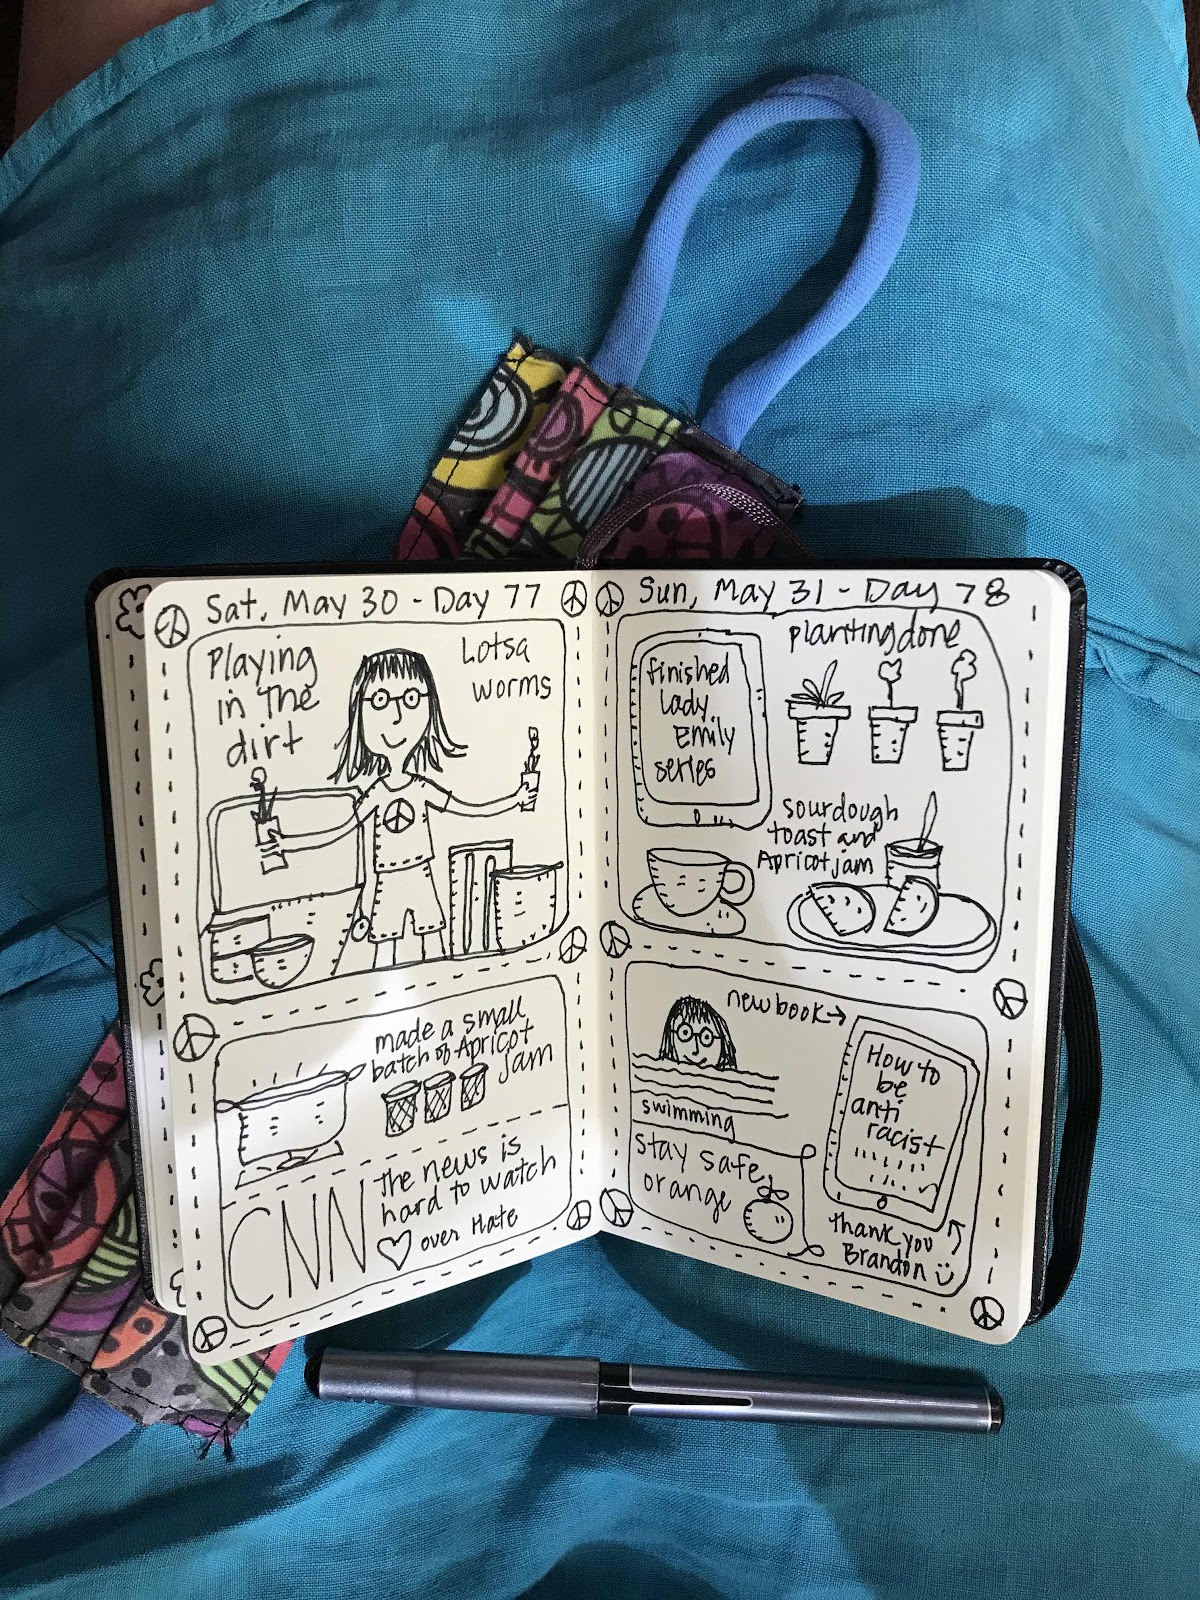 Sat, May 30 - Day 77
Playing
in the
dirt
Lotsa
worms
made a small
batch of Apricot
jam
CNN
The news is
hard to watch
over Hate
Sun, May 31 - Day 78
finished
Lady
Emily
series
planting done
sourdough
toast and
Apricot jam
swimming
stay safe,
orange
new book→
How to
be
anti
racist
thank you
Brandon